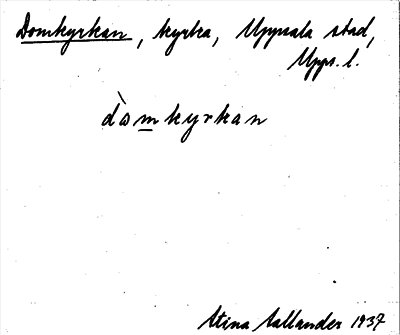 Domkyrkan, kyrka, Uppsala stad,
Upps. l.
dòmkyrkan
Stina Sallander 1937